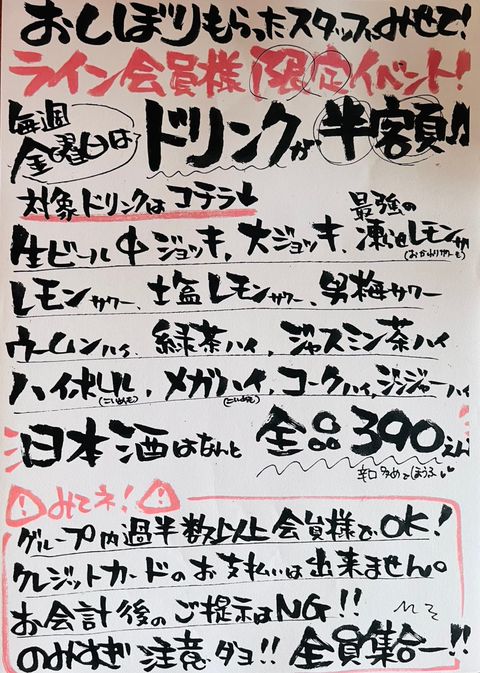 おしぼりもらったスタッフにみせて!
ライン会員様 限定イベント!
毎週金曜日は ドリンクが半額!!
対象ドリンクはコチラ↓
生ビール中ジョッキ、大ジョッキ、最強の凍らせレモンサワー
(おかわりサワーも)
レモンサワー、塩レモンサワー、男梅サワー
ウーロンハイ、緑茶ハイ、ジャスミン茶ハイ
ハイボール、メガハイ、コークハイ、ジンジャーハイ
(こいめも) (こいめも)
日本酒はなんと 全品390えん
辛口多めでほうふ♥
みてネ!
グループ内過半数以上会員様でOK!
クレジットカードのお支払いは出来ません。
お会計後のご提示はNG!!
のみすぎ注意ダヨ!! 全員集合ー!!